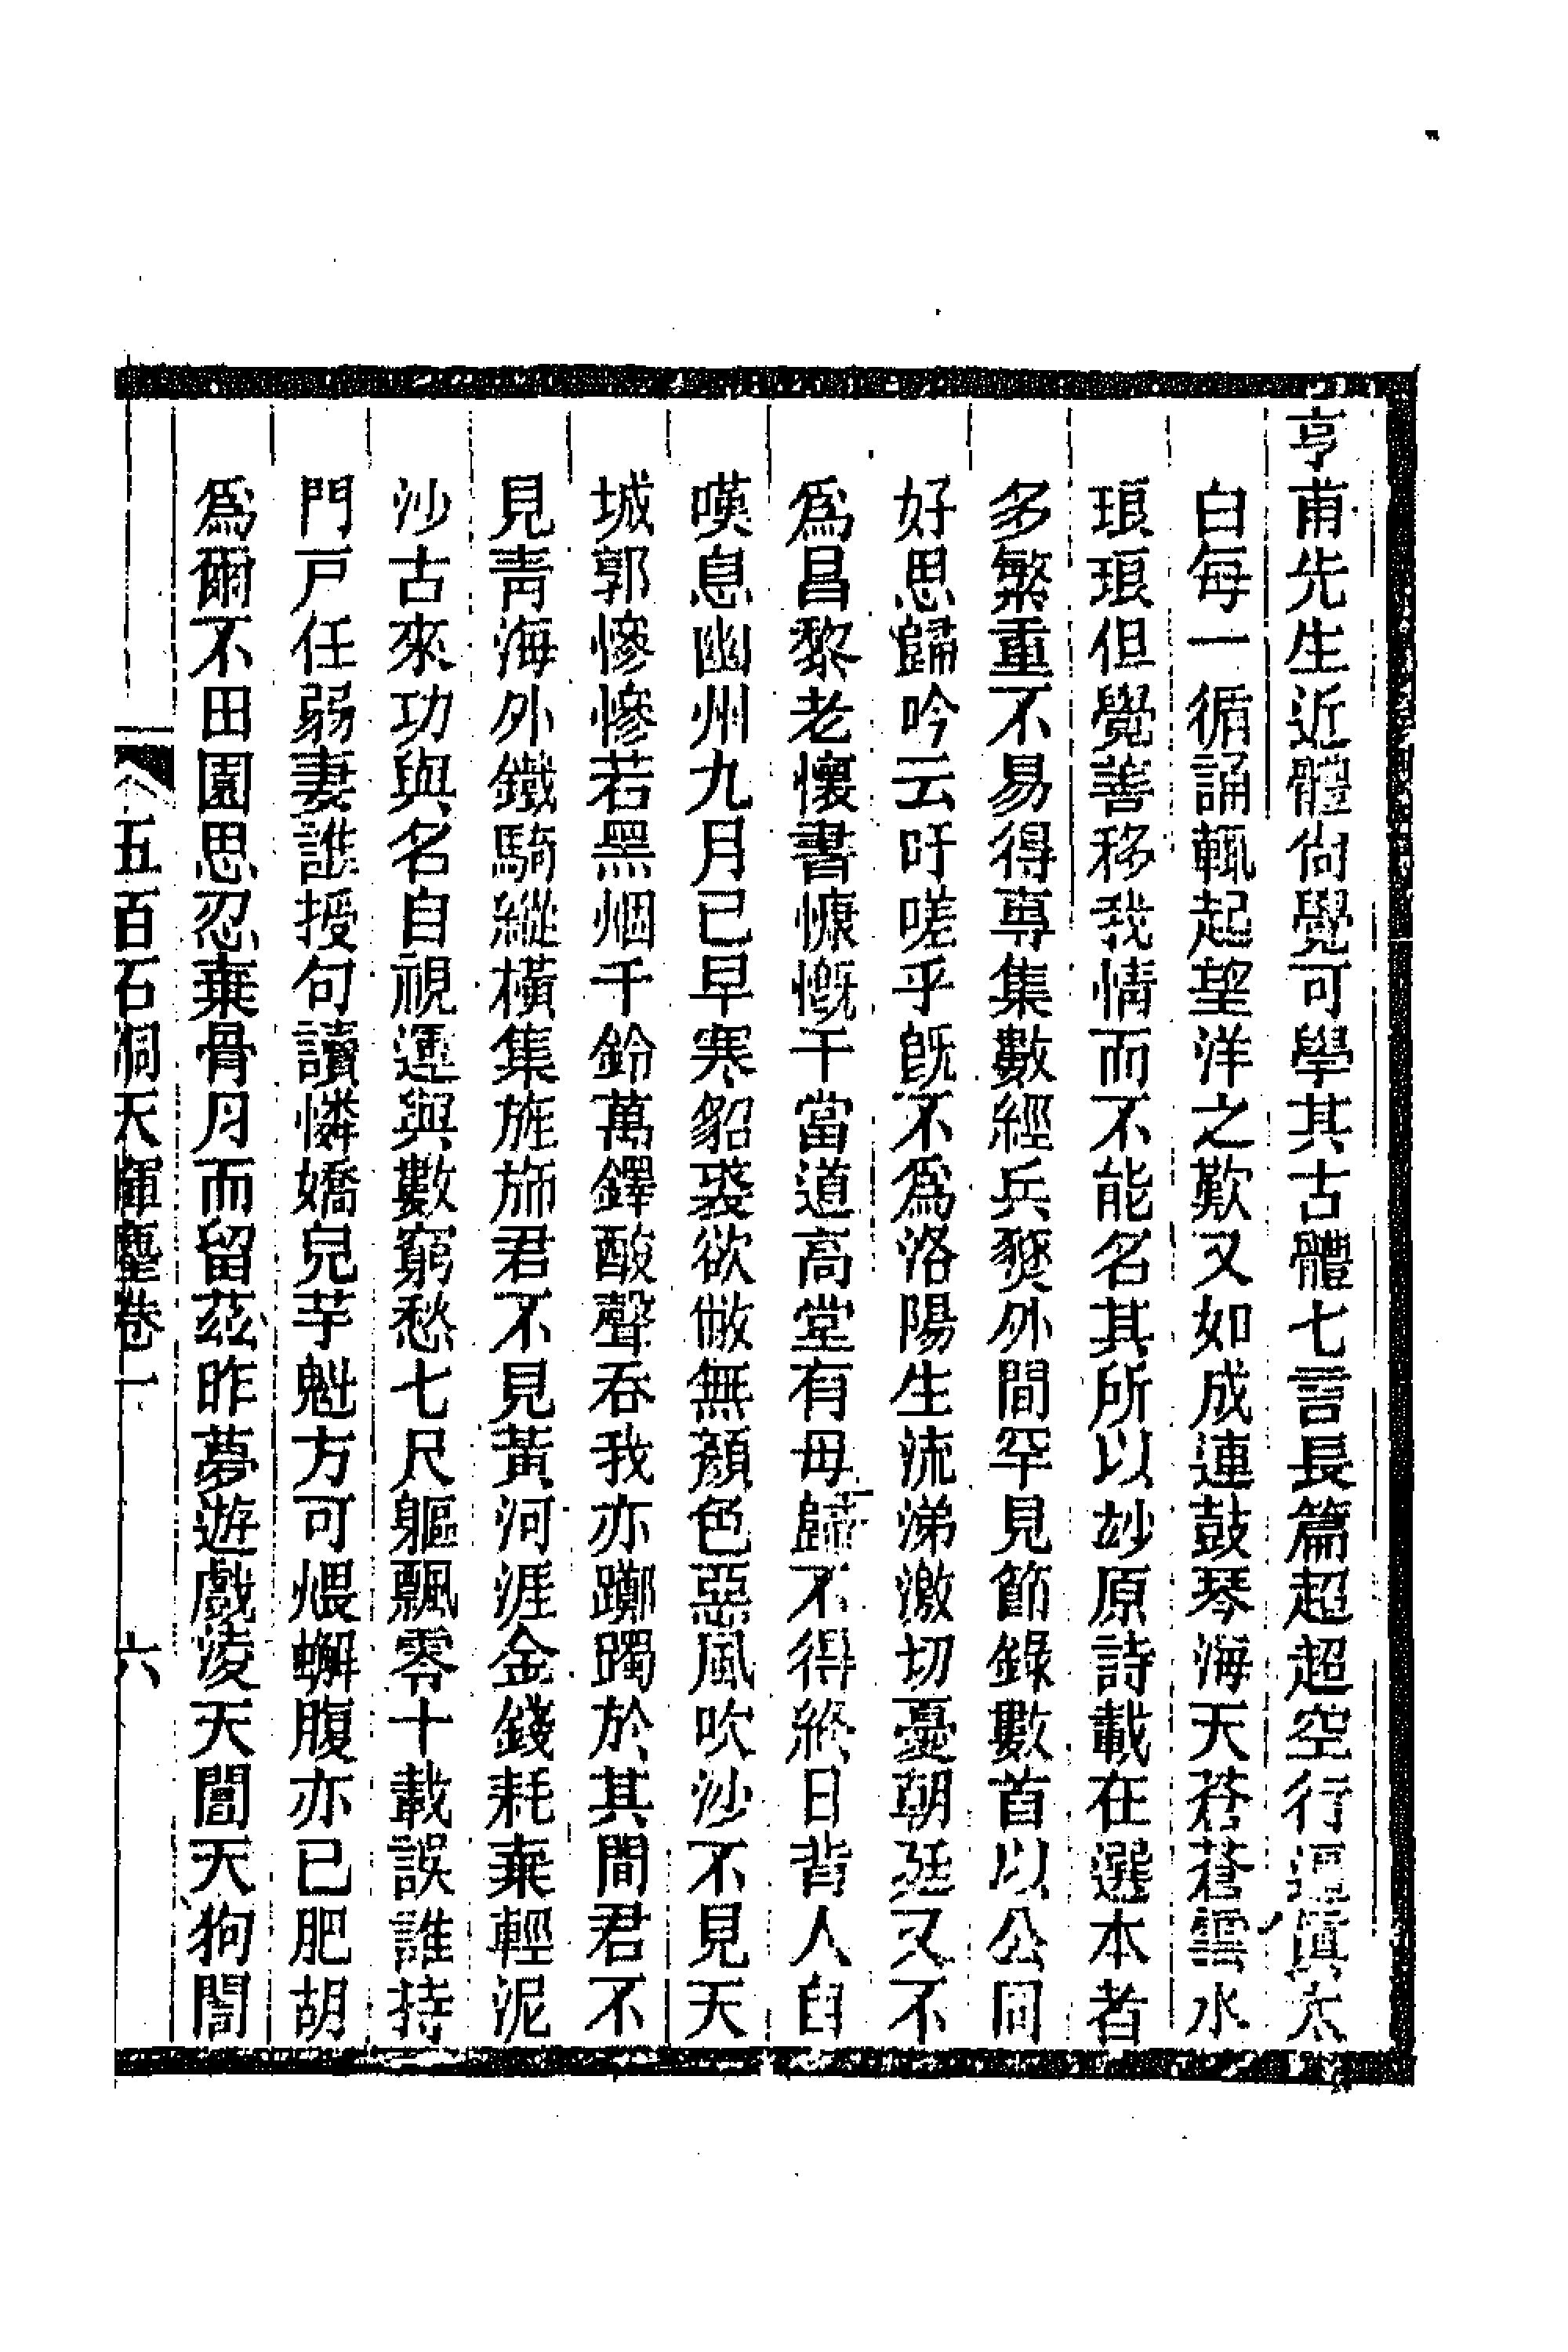 亨甫先生近體尙覺可學其古體七言長篇超超空行逼眞太
白每一循誦輒起望洋之歎又如成連鼓琴海天蒼蒼雲水
琅琅但覺善移我情而不能名其所以玅原詩載在選本者
多繁重不易得專集數經兵燹外間罕見節錄數首以公同
好思歸吟云吁嗟乎旣不爲洛陽生流涕激切憂朝廷又不
爲昌黎老懷書慷慨干當道高堂有母歸不得終日背人自
嘆息幽州九月已早寒貂裘欲敝無顏色惡風吹沙不見天
城郭慘慘若黑烟千鈴萬鐸酸聲吞我亦躑躅於其間君不
見靑海外鐵騎縱橫集旌旆君不見黃河涯金錢耗棄輕泥
沙古來功與名自視運與數窮愁七尺軀飄零十載誤誰持
門戸任弱妻誰授句讀憐嬌兒芋魁方可煨蠏腹亦已肥胡
爲爾不田園思忍棄骨肉而留茲昨夢遊戲淩天閶天狗誾
五百石洞天揮麈卷一 六